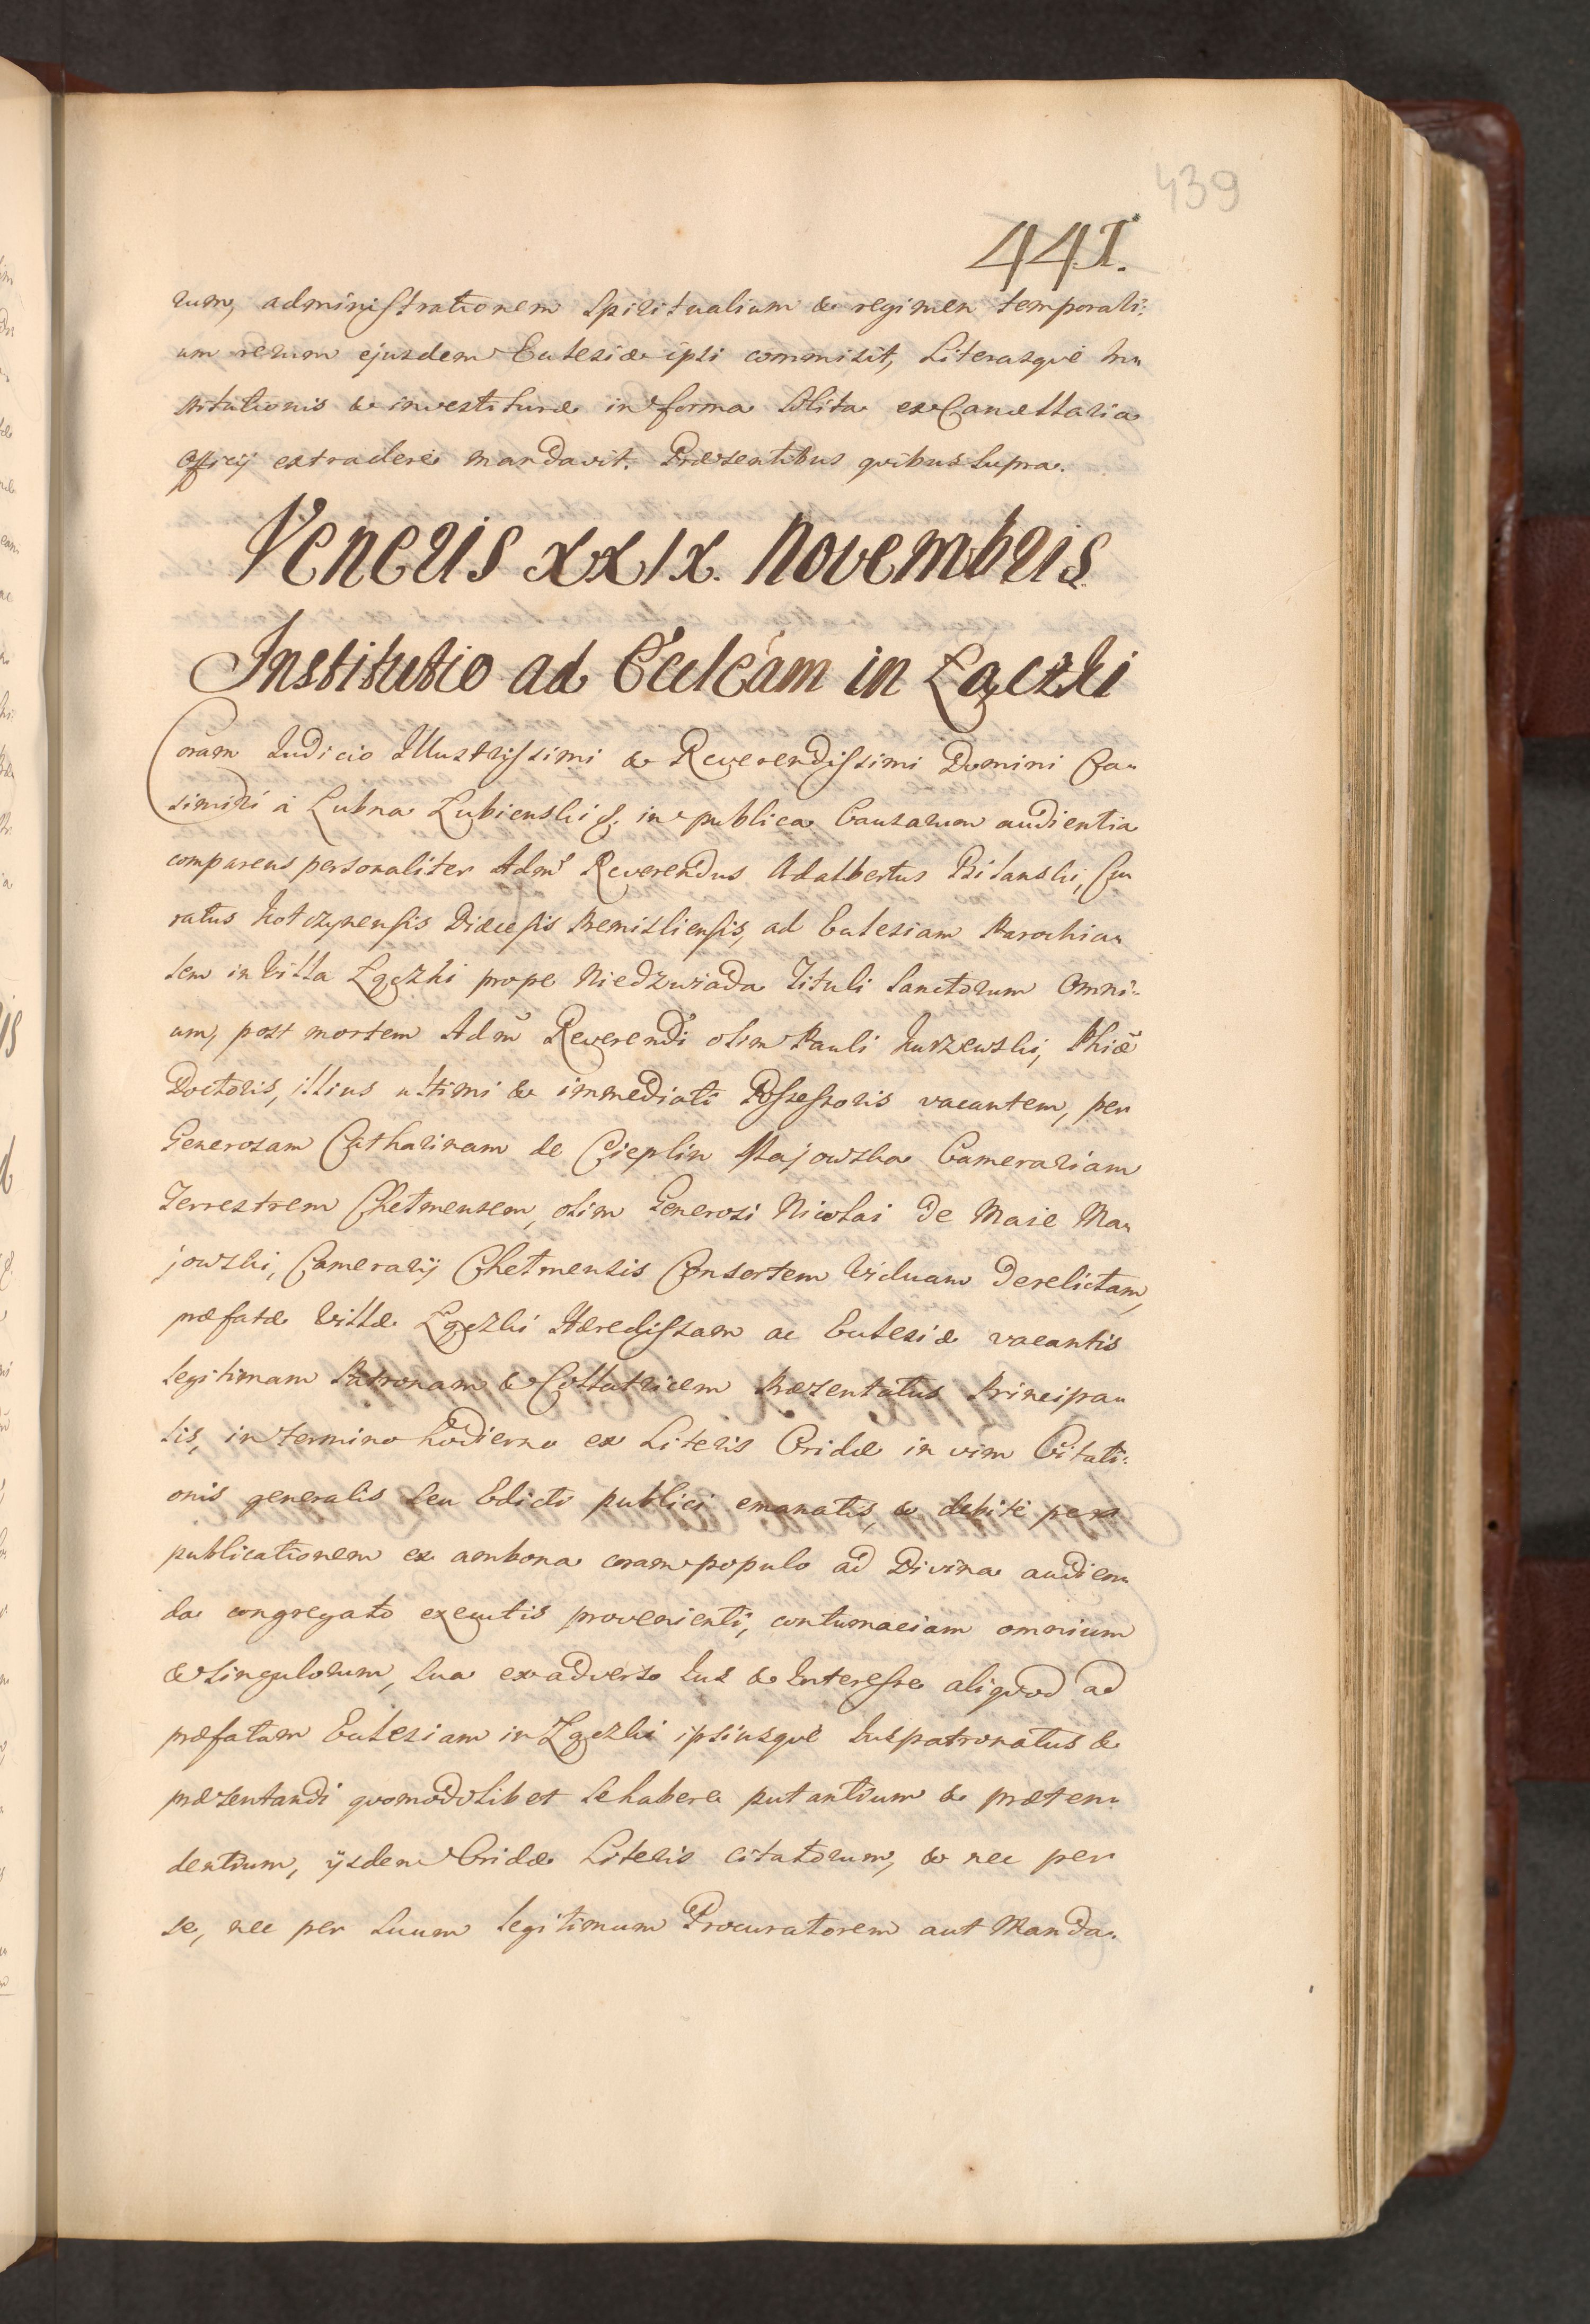 439
441.
rum, administrationem Spiritualium & regimen temporali:
um rerum ejusdem Eclesiæ ipsi commisit, Literasquè In-
stitutionis & investituræ in forma solita ex Cancellaria
Officij extradere mandavit. Præsentibus quibus supra.
Veneris xxix. Novembris
Institutio ad Eccleãm in Łączki
Coram Iudicio Illustrissimi & Reverendissimi Domini Ca-
simiri à Lubna Łubienski &. in publica Causarum audientia
comparens personaliter Adm̃ Reverendus Adalbertus Bilanski, Cu-
ratus Kotczynensis Diæcesis Premisliensis, ad Eclesiam Parochia-
lem in Villa Łączki prope Niedzwiada Tituli Sanctorum Omni:
um, post mortem Adm̃ Reverendi olim Pauli Kurzewski, Phiæ
Doctoris, illius ultimi & immediati Possessoris vacantem, per
Generosam Catharinam de Cieplin Majowska Camerariam
Terrestrem Chełmensem, olim Generosi Nicolai de Maie Ma-
jowski, Camerarij Chełmensis Consortem Viduam derelictam,
præfatæ Villæ Łączki Hæredissam ac Eclesiæ vacantis
legitimam Patronam & Collatricem Præsentatus Principa-
lis, in termino hodierno ex Literis Cridæ in vim Citati:
onis generalis seu Edicti publici emanatis, & debitè per
publicationem ex ambona coram populo ad Divina audien-
da congregato executis provenienti, contumaciam omnium
& singulorum, sua ex adverso Ius & Interesse aliquod ad
præfatam Eclesiam in Łączki ipsiusquè Iuspatronatus &
præsentandi quomodolibet se habere putantium & præten-
dentium, ijsdem Cridæ Literis citatorum, & nec per
se, nec per suum legitimum Procuratorem aut Manda-